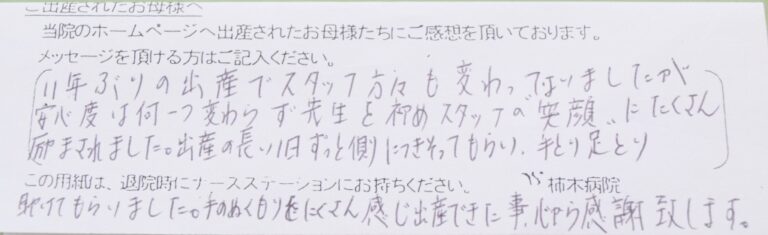 ご出産されたお母様へ
当院のホームページへ出産されたお母様たちにご感想を頂いております。
メッセージを頂ける方はご記入ください。
11年ぶりの出産でスタッフ方々も変わってはいましたが
安心度は何一つ変わらず先生を初めスタッフの"笑顔"にたくさん
励まされました。出産の長い1日ずっと側につきそってもらい、手とり足とり
この用紙は、退院時にナースステーションにお持ちください。 柿木病院
助けてもらいました。手のぬくもりをたくさん感じ出産できた事、心から感謝致します。